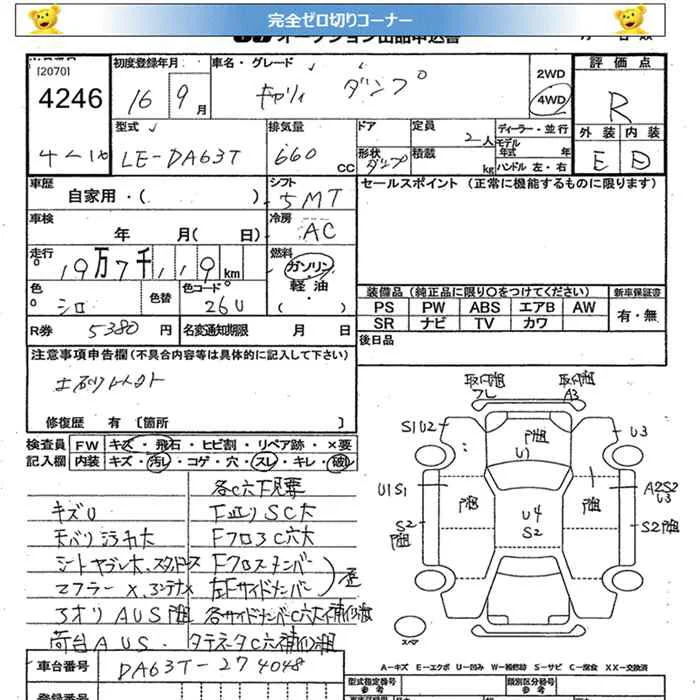 完全ゼロ切りコーナー
オークション出品申込書
[2070]
4246
4-10
初度登録年月
16年 9月
車名・グレード
キャリィ ダンプ
2WD
4WD
評価点
R
外装 内装
E D
型式
LE-DA63T
排気量
660 CC
ドア
形状 ダンプ
定員 2人
積載 kg
ディーラー・並行
モデル年式 年
ハンドル 左・右
車歴
自家用・( )
シフト
5MT
セールスポイント (正常に機能するものに限ります)
車検
年 月( 日)
冷房
AC
走行
19万7千119km
燃料
ガソリン
軽油・( )
色
シロ
色替
色コード
26U
装備品(純正品に限り○をつけてください)
新車保証書
PS PW ABS エアB AW
SR ナビ TV カワ
有・無
R券 5380円
名変通知期限 月 日
後日品
注意事項申告欄(不具合内容等は具体的に記入して下さい)
修復歴 有 〔箇所 〕
検査員記入欄
FW キズ・飛石・ヒビ割・リペア跡・×要
内装 キズ・汚レ・コゲ・穴・スレ・キレ・破レ
各C穴下見要
キズU
下廻りSC大
天バリ汚れ大
FフロアC穴大
シートヤブレ大、スタッドレス
Fクロスメンバー
マフラー×、3ンテナ×
左Fサイドメンバー
アオリAUS凹
各サイドメンバーC穴大補修跡
荷台AUS.
タテネタC穴補修跡
取付凹
フレ
取付凹
A3
S1U2
凹
U1
U3
U1S1
凹
凹
A2S2
U3
S2
凹
U4
S2
S2凹
スペア
A-キズ E-エクボ U-凹み W-補修跡 S-サビ C-腐食 XX-交換済
車台番号
DA63T-274048
登録番号
型式指定番号
参考
類別区分番号
参考